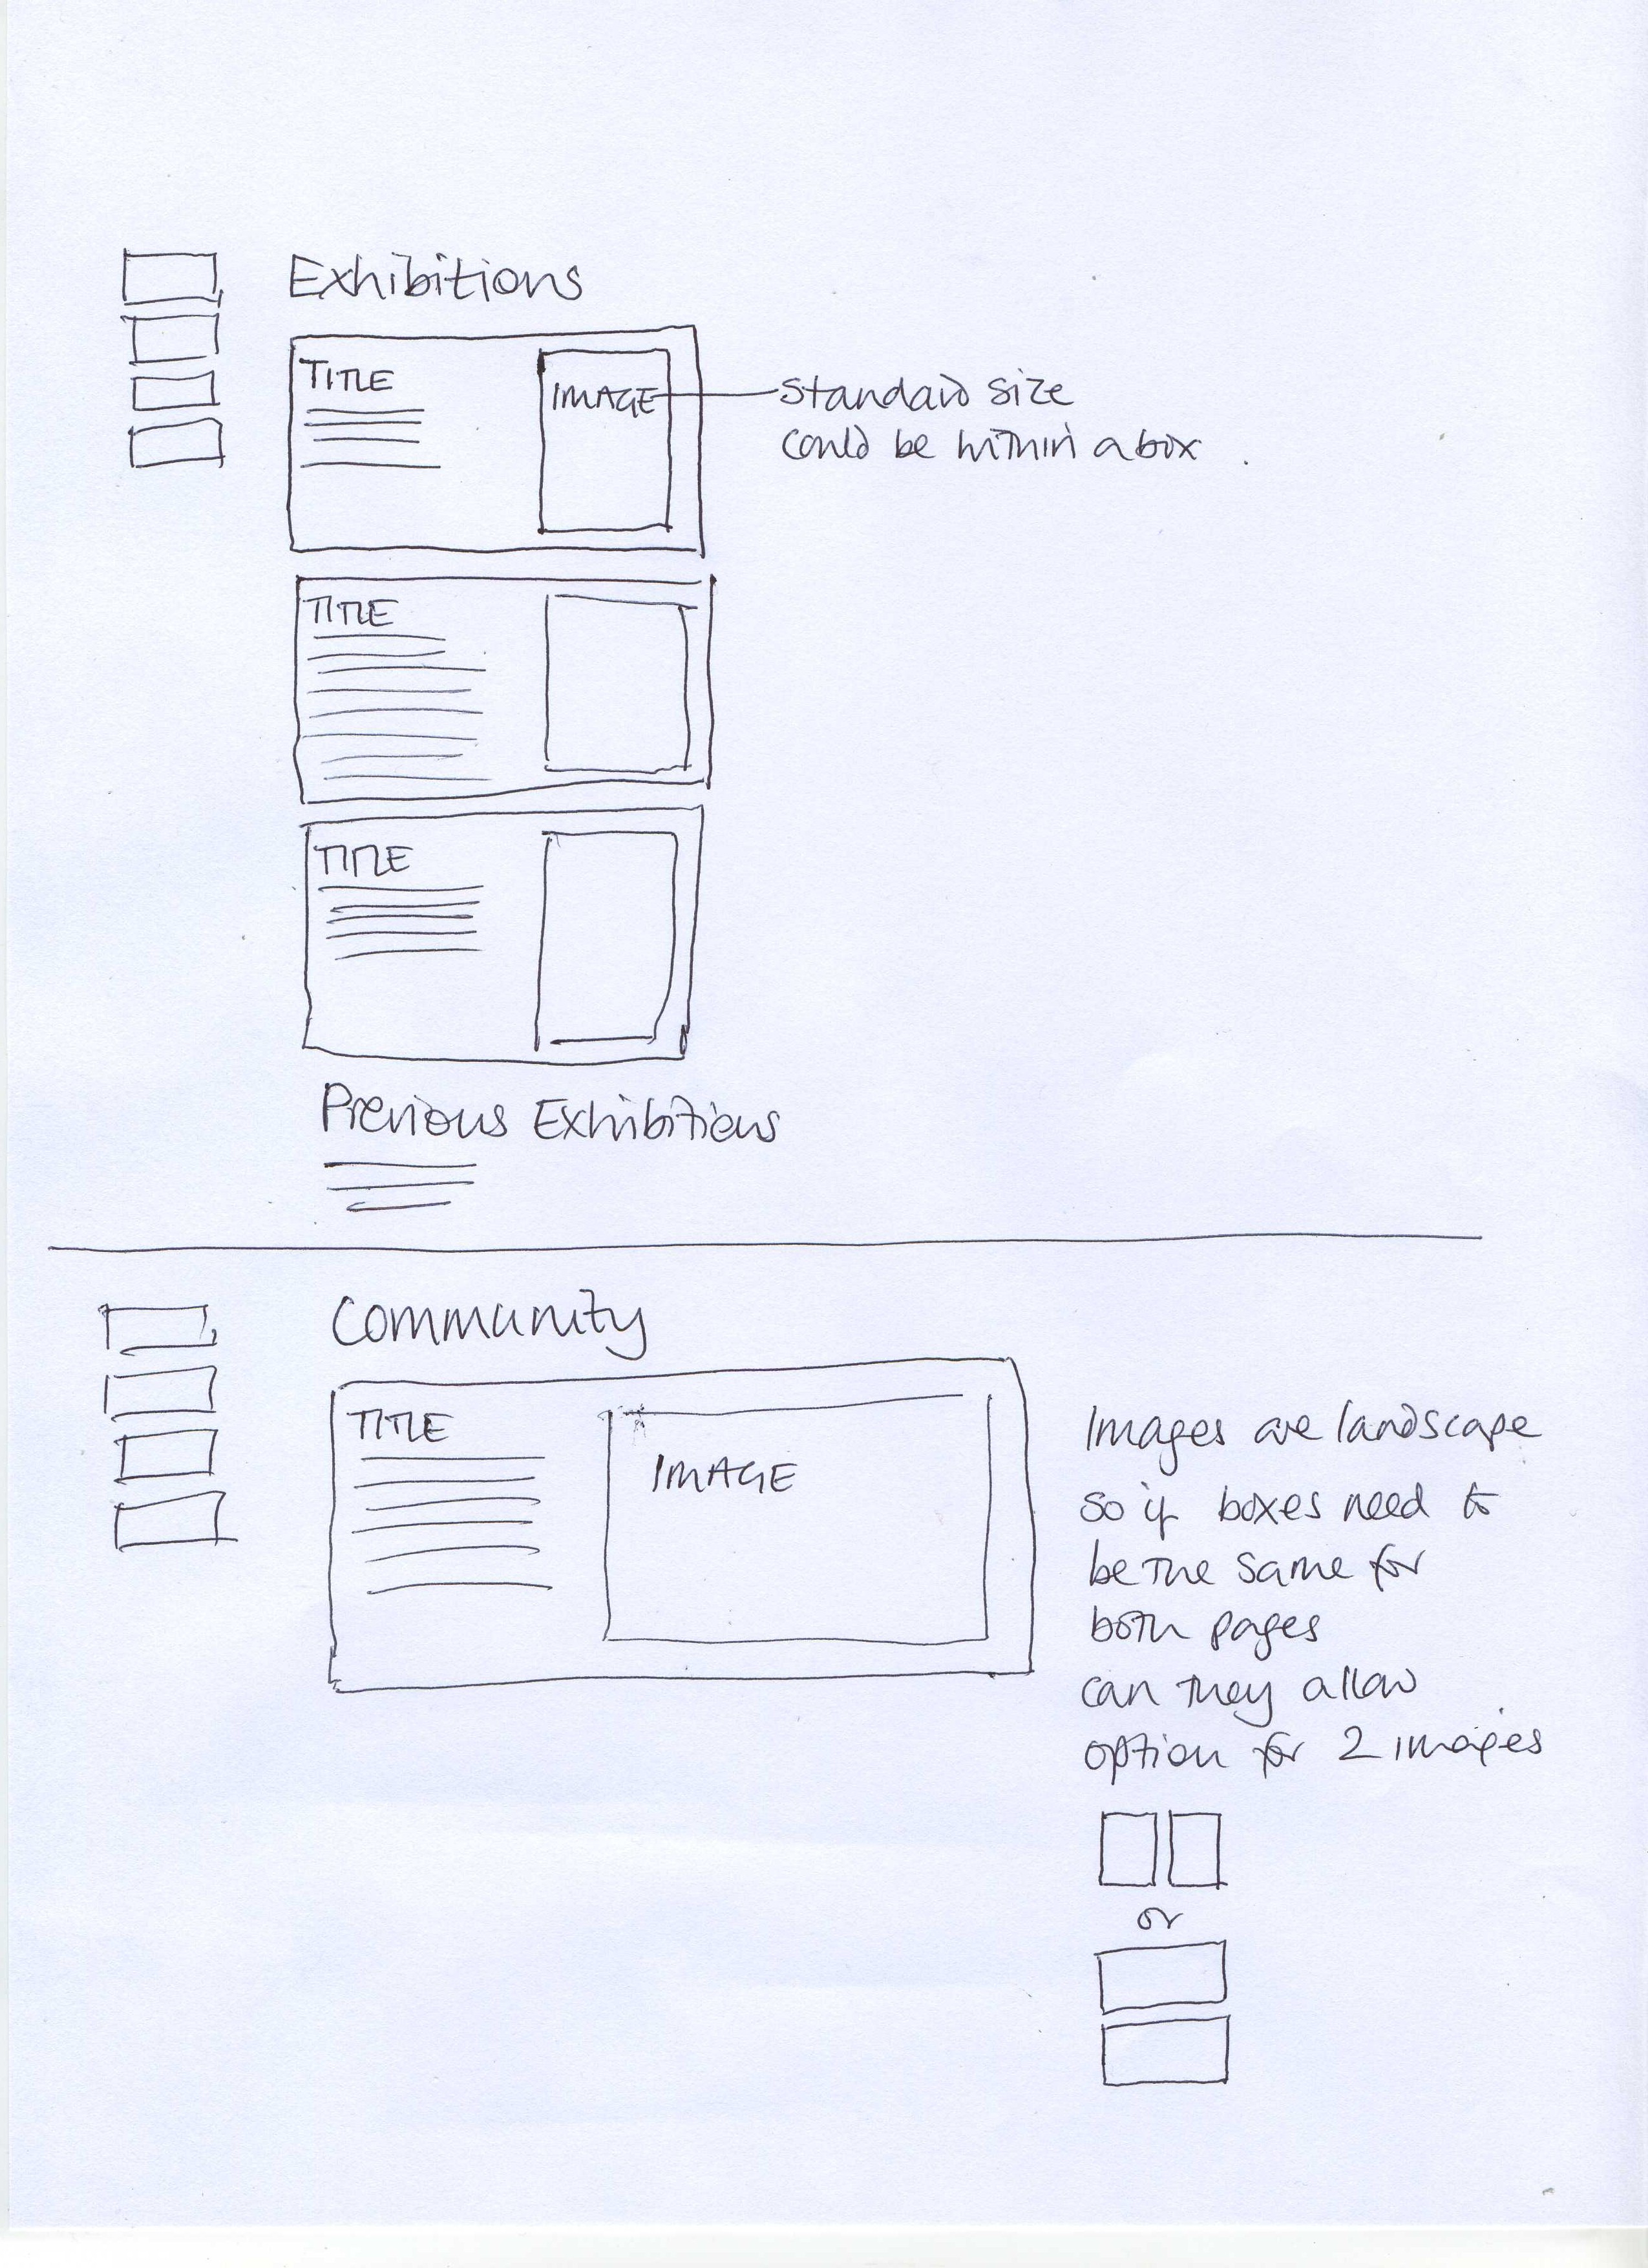 Exhibitions
TITLE
IMAGE
Standard size
could be within a box.
TITLE
TITLE
Previous Exhibitions
Community
TITLE
IMAGE
Images are landscape
so if boxes need to
be the same for
both pages
can they allow
option for 2 images
or